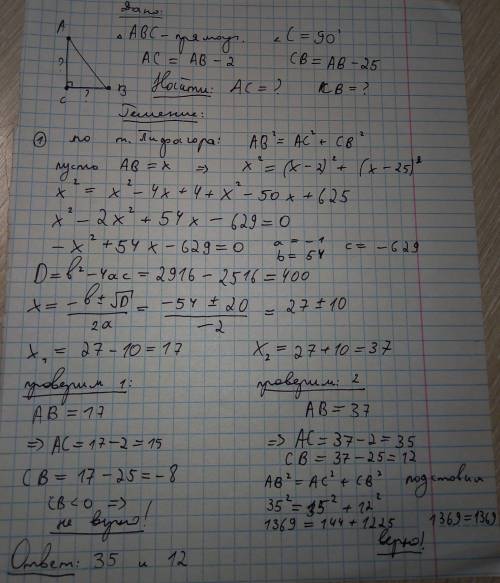 Дано:
A
△ABC - прямоуг. ∠C = 90°
AC = AB - 2 CB = AB - 25
? C ? B
Найти: AC = ? CB = ?
Решение:
① по т. Пифагора: AB² = AC² + CB²
пусть AB = x ⇒ x² = (x - 2)² + (x - 25)²
x² = x² - 4x + 4 + x² - 50x + 625
x² - 2x² + 54x - 629 = 0
-x² + 54x - 629 = 0 a = -1 b = 54 c = -629
D = b² - 4ac = 2916 - 2516 = 400
x = (-b ± √D)/2a = (-54 ± 20)/-2 = 27 ± 10
x₁ = 27 - 10 = 17 x₂ = 27 + 10 = 37
проверим 1:
AB = 17
⇒ AC = 17 - 2 = 15
CB = 17 - 25 = -8
CB < 0 ⇒
не верно!
проверим: 2
AB = 37
⇒ AC = 37 - 2 = 35
CB = 37 - 25 = 12
AB² = AC² + CB²
35² + 12²
1369 = 144 + 1225 1369 = 1369
верно!
Ответ: 35 и 12